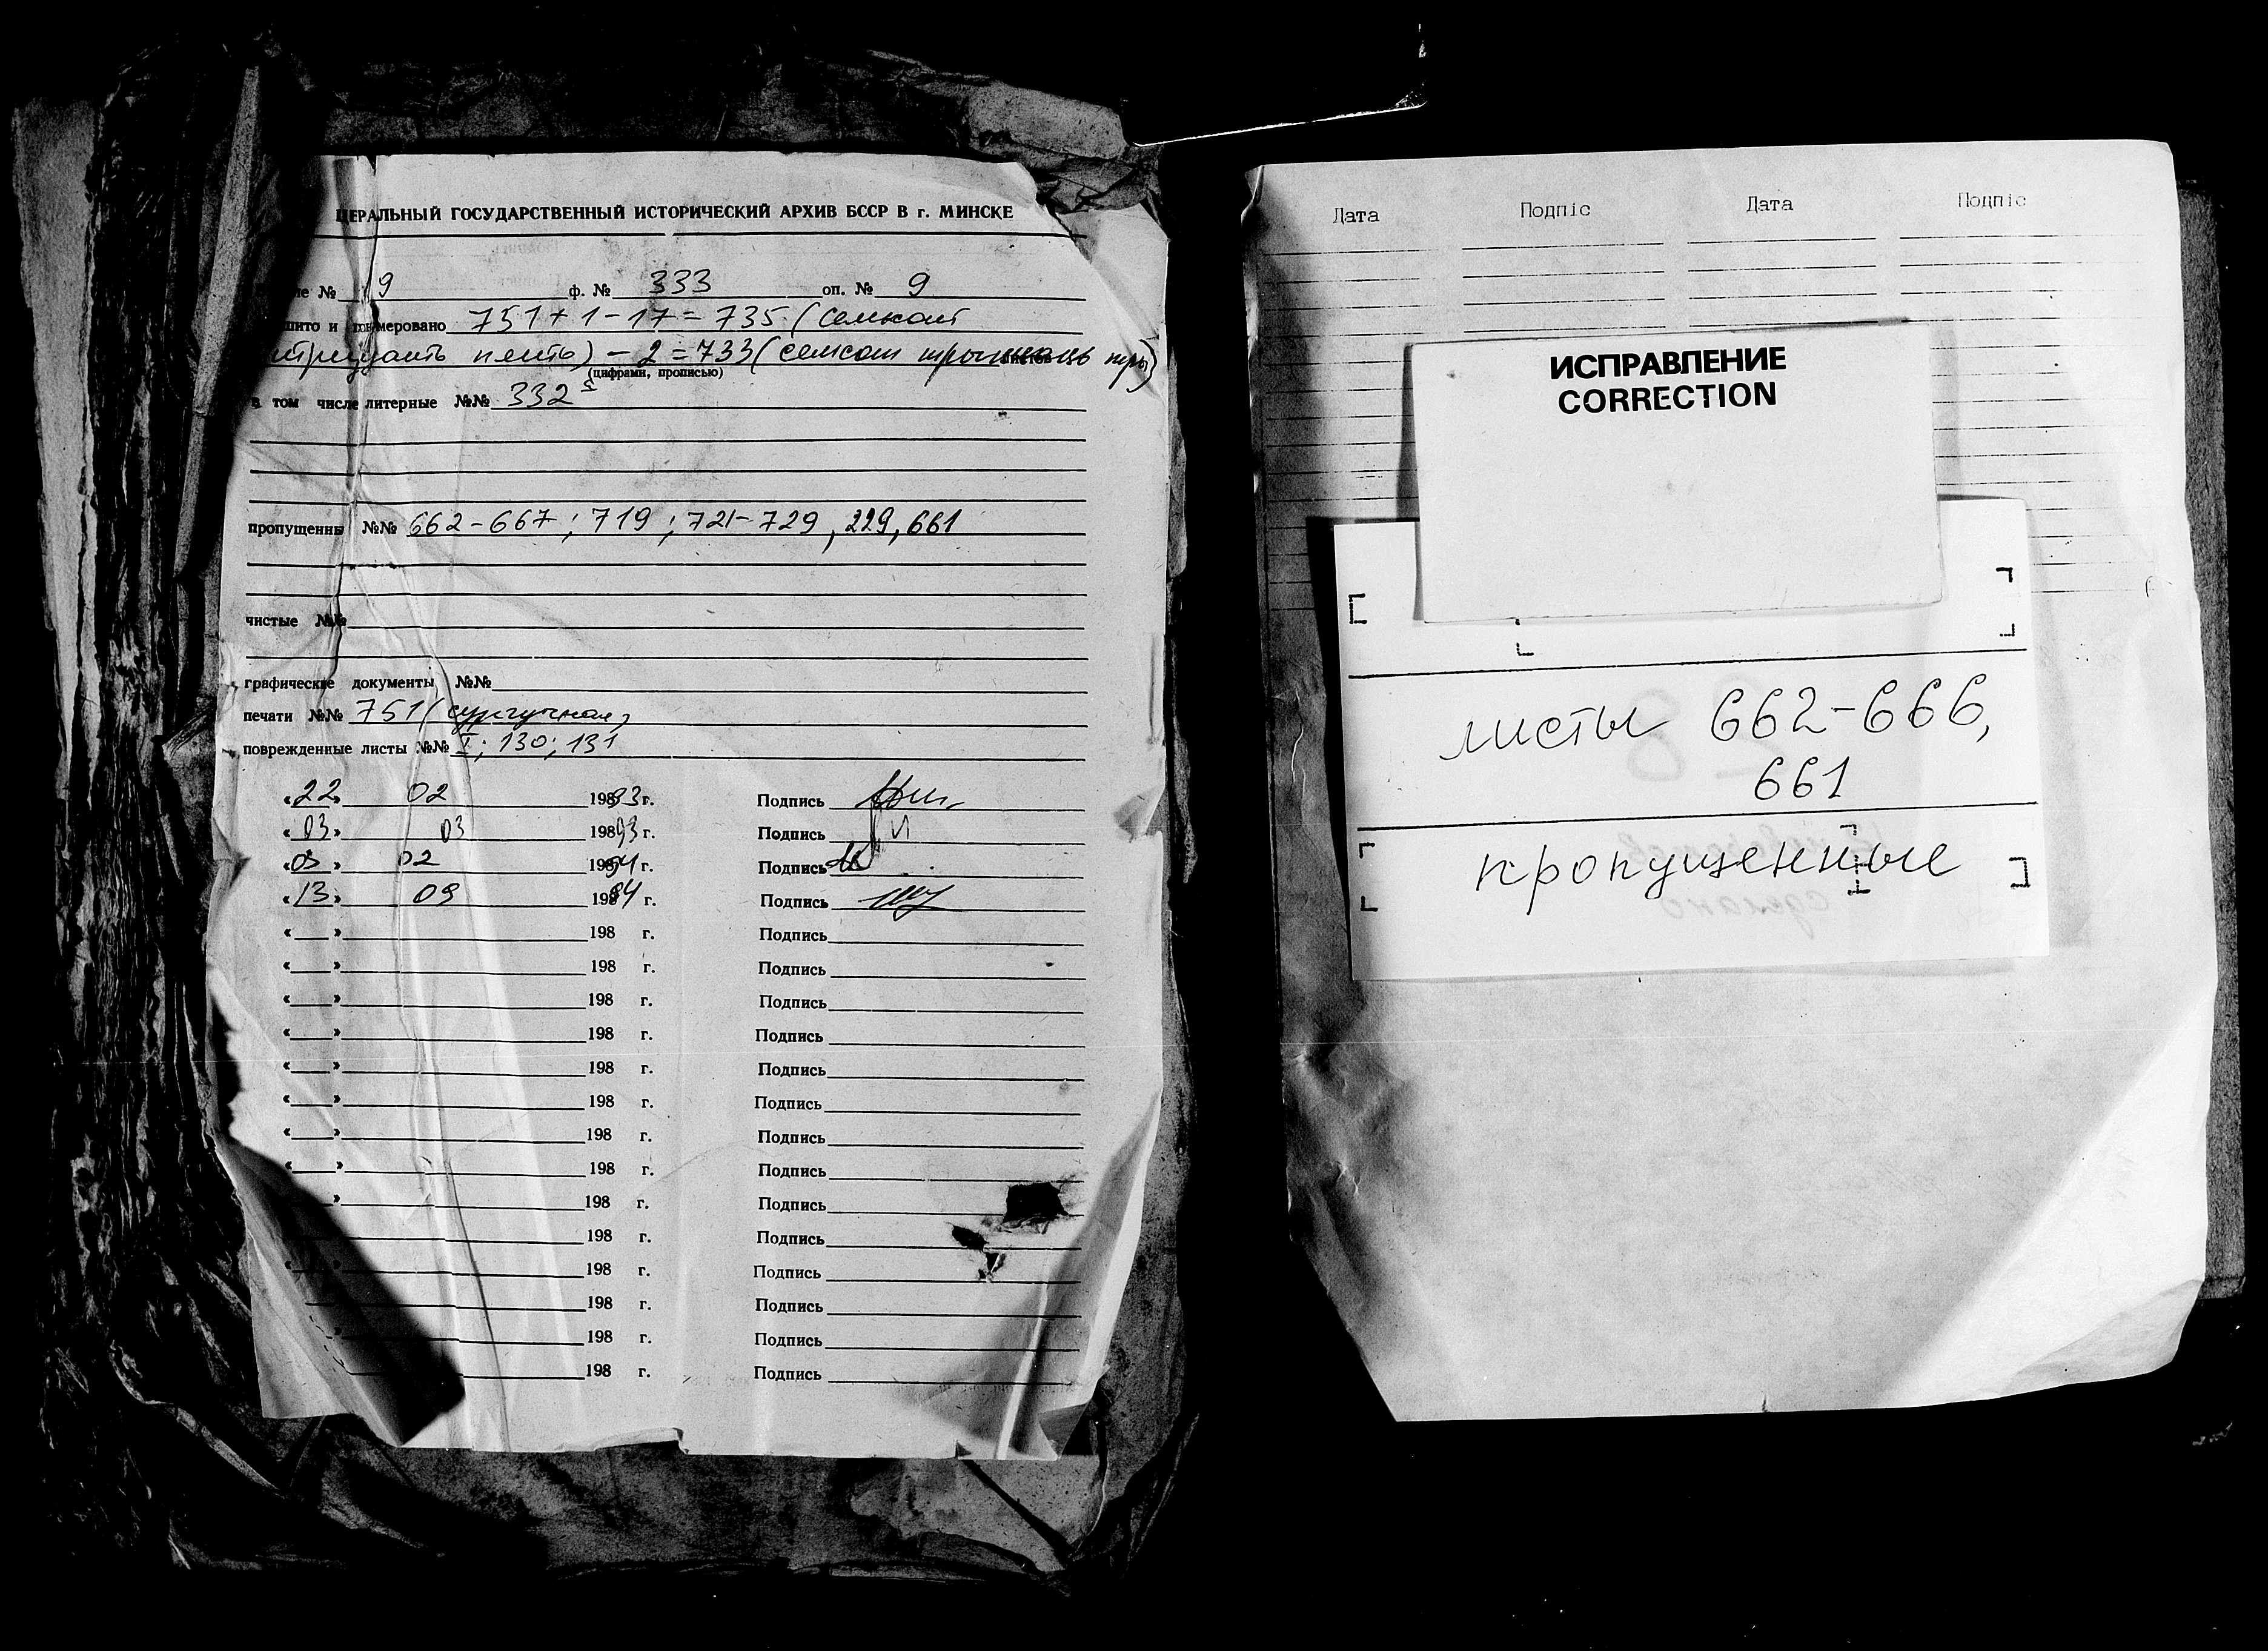 ЦЕРАЛЬНЫЙ ГОСУДАРСТВЕННЫЙ ИСТОРИЧЕСКИЙ АРХИВ БССР В г. МИНСКЕ
№ 19 ф. № 333 оп. № 9
751 + 1 - 17 = 735 (семьсот
тридцать пять) - 2 = 733 (семсот трыццаць тры)
(цифрами, прописью)
в том числе литерные №№ 332 а
пропущенны №№ 662-667; 719; 721-729, 229, 661
чистые №№
графические документы №№
печати №№ 751 (сургучная)
поврежденные листы №№ I; 130; 131
«22» 02 1993 г. Подпись
«03» 03 1993 г. Подпись
«03» 02 1994 г. Подпись
«13» 09 1994 г. Подпись
«» 198 г. Подпись
«» 198 г. Подпись
«» 198 г. Подпись
«» 198 г. Подпись
«» 198 г. Подпись
«» 198 г. Подпись
«» 198 г. Подпись
«» 198 г. Подпись
» 198 г. Подпись
198 г. Подпись
198 г. Подпись
198 г. Подпись
198 г. Подпись
198 г. Подпись
Дата Подпіс Дата Подпіс
ИСПРАВЛЕНИЕ
CORRECTION
листы 662-666,
661
пропущенные